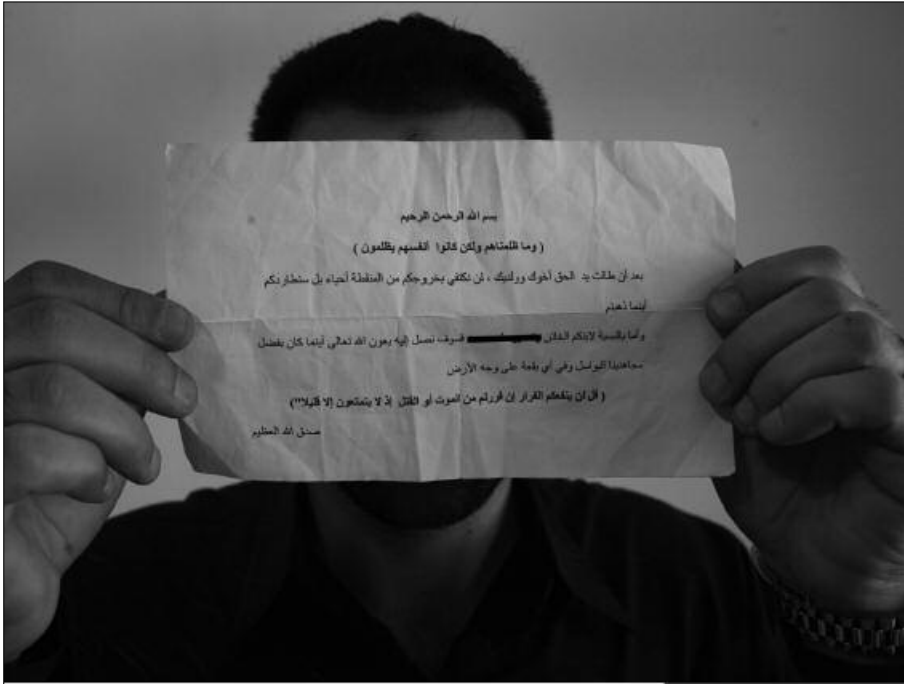 بسم الله الرحمن الرحيم
( وما ظلمناهم ولكن كانوا أنفسهم يظلمون )
بعد أن طالت يد الحق أخوك ووالديك ، لن نكتفي بخروجكم من المنطقة أحياء بل سنطاردكم
أينما ذهبتم
وأما بالنسبة لابنكم الخائن فسوف نصل إليه بعون الله تعالى أينما كان بفضل
مجاهدينا البواسل وفي أي بقعة على وجه الأرض
( قل لن ينفعكم الفرار إن فررتم من الموت أو القتل إذ لا يتمتعون إلا قليلا")
صدق الله العظيم